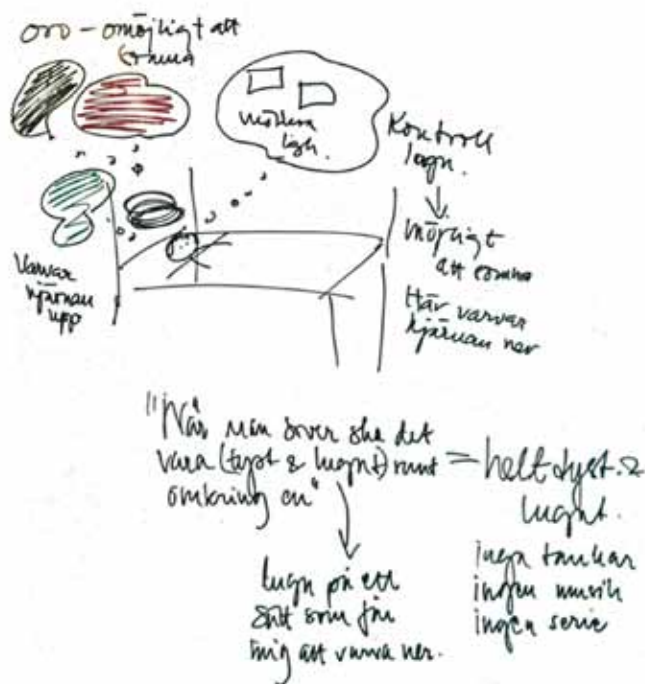 oro – omöjligt att
somna
Kontroll
lugn.
möjligt
att somna
Här varvar
hjärnan ner
Varvar
hjärnan
upp
"När man sover ska det
vara (tyst & lugnt) runt
omkring en"
= helt tyst &
lugnt.
inga tankar
ingen musik
ingen serie
lugn på ett
sätt som får
mig att varva ner.